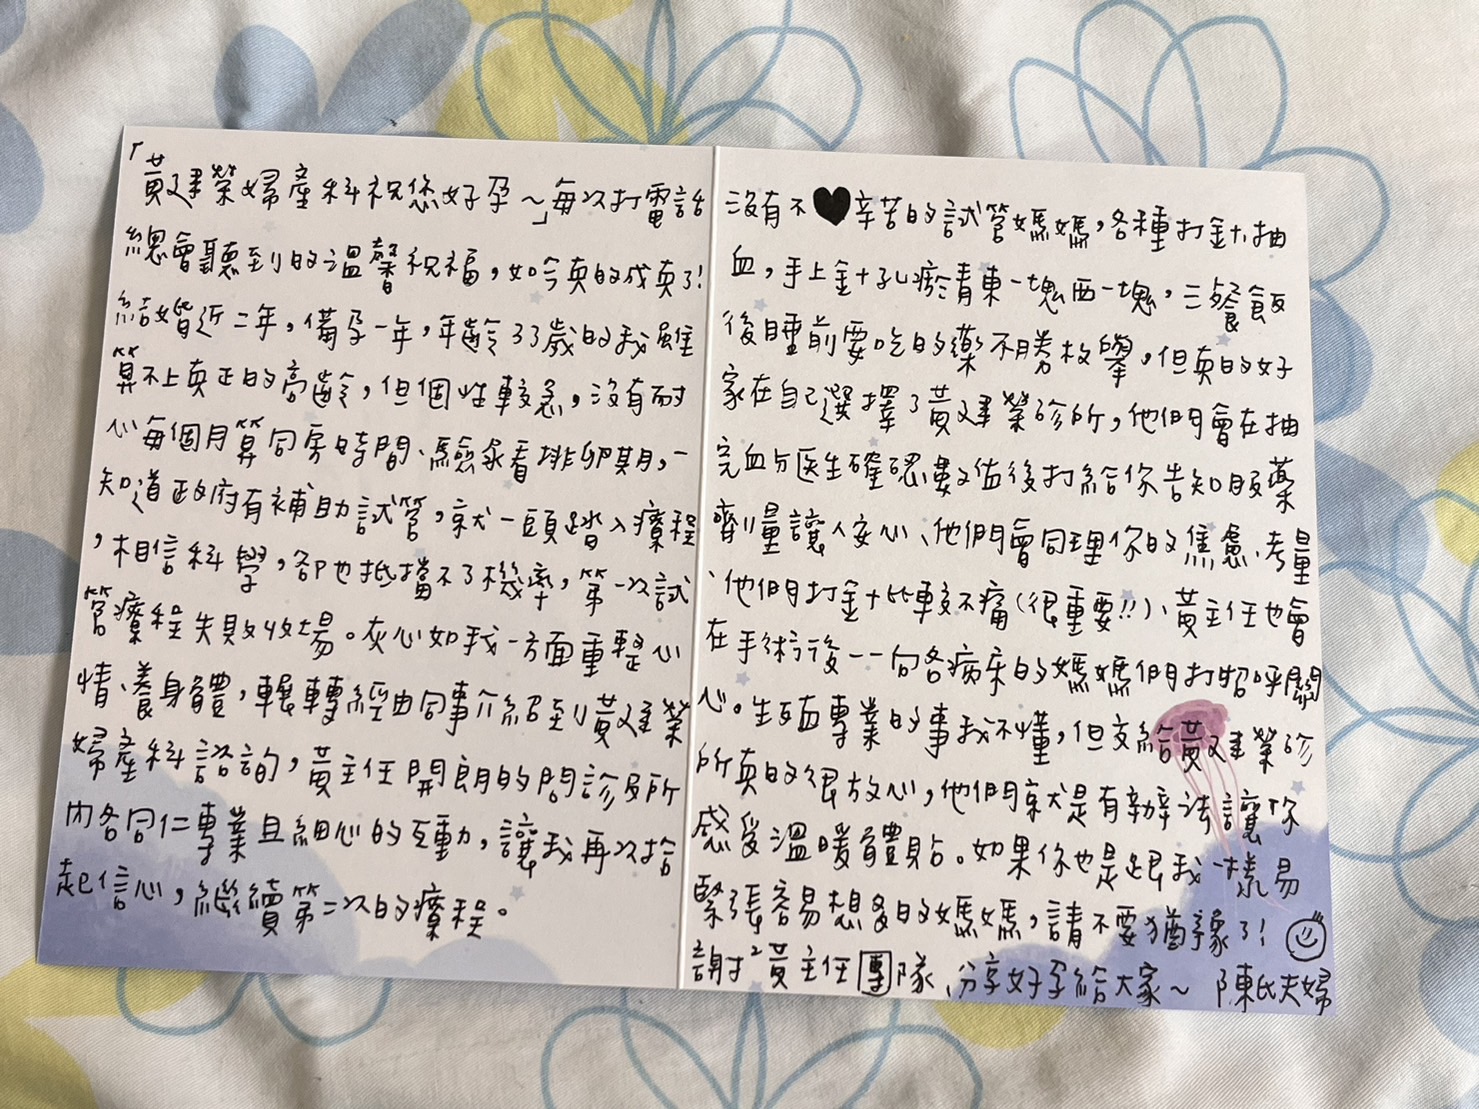 「黃建榮婦產科祝您好孕~」每次打電話
總會聽到的溫馨祝福,如今真的成真了!
結婚近二年,備孕一年,年齡33歲的我雖
算不上真正的高齡,但個性較急,沒有耐
心每個月算同房時間、驗尿看排卵期,一
知道政府有補助試管,就一頭踏入療程
,相信科學,卻也抵擋不了機率,第一次試
管療程失敗收場。灰心如我一方面重整心
情、養身體,輾轉經由同事介紹到黃建榮
婦產科諮詢,黃主任開朗的問診及所
內各同仁專業且細心的互動,讓我再次拾
起信心,繼續第二次的療程。
沒有不♥辛苦的試管媽媽,各種打針、抽
血,手上針孔瘀青東一塊西一塊,三餐飯
後睡前要吃的藥不勝枚舉,但真的好
家在自己選擇了黃建榮診所,他們會在抽
完血与医生確認數值後打給你告知服藥
劑量讓人安心、他們會同理你的焦慮、考量
、他們打針比較不痛(很重要!!)、黃主任也會
在手術後一一向各病床的媽媽們打招呼關
心。生殖專業的事我不懂,但交給黃建榮診
所真的很放心,他們就是有辦法讓你
感受溫暖體貼。如果你也是跟我一樣易
緊張容易想多的媽媽,請不要猶豫了!
謝謝黃主任團隊、分享好孕給大家~ 陳氏夫婦